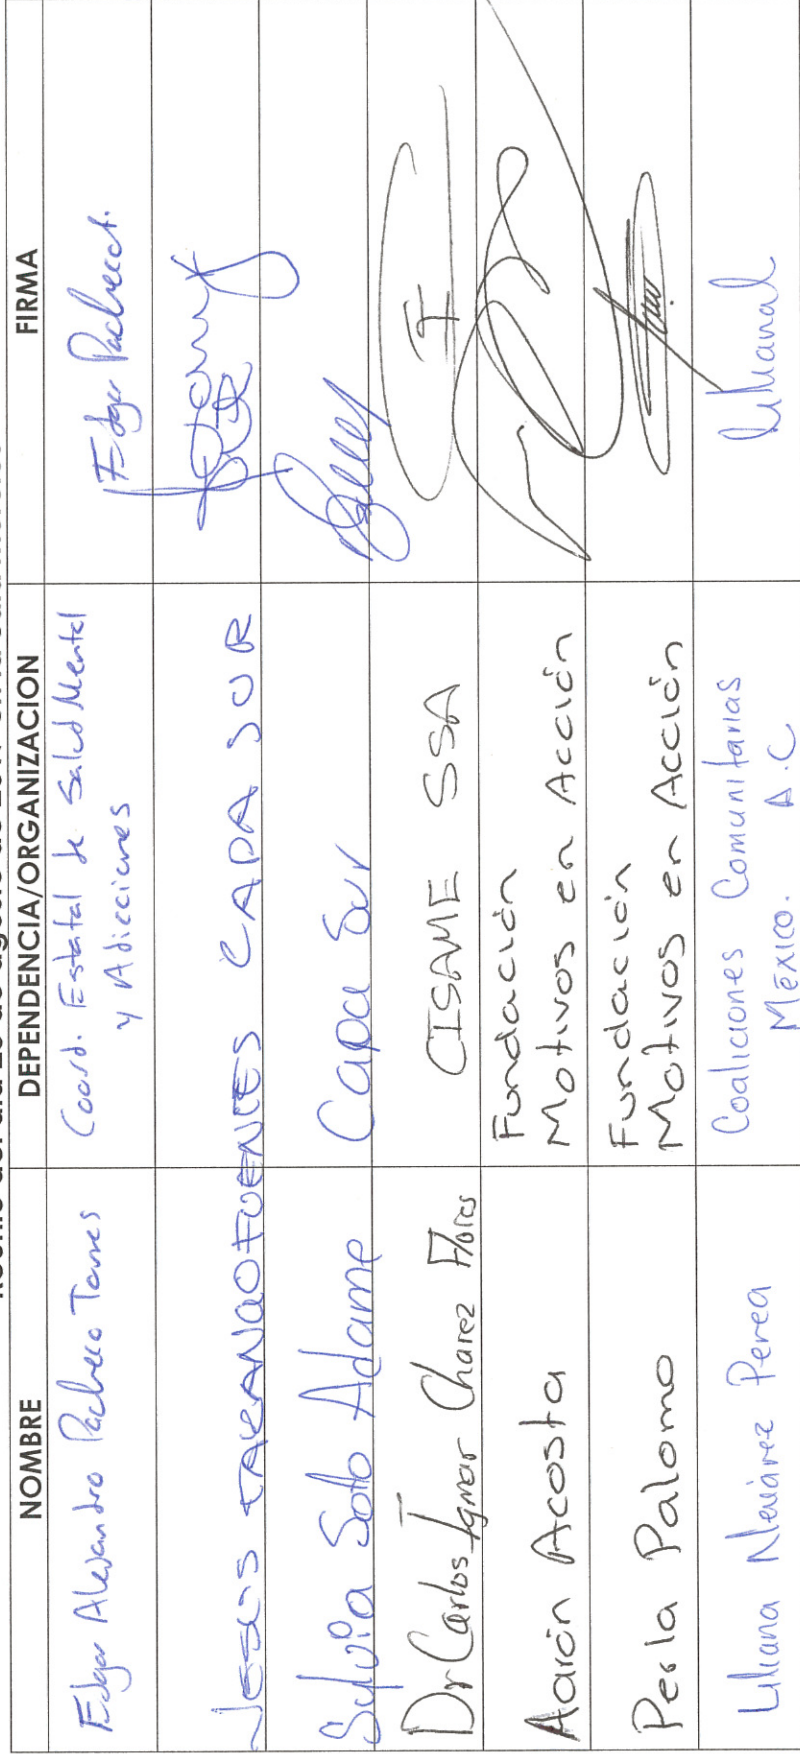 NOMBRE DEPENDENCIA/ORGANIZACION FIRMA
Edgar Alejandro Pacheco Torres Coord. Estatal de Salud Mental
y Adicciones
Edgar Pacheco t.
JESUS TARANGO FUENTES CAPA SUR
Sylvia Soto Adame Capa Sur
Dr Carlos Ignar Chavez Flores CISAME SSA
Aarón Acosta Fundación
Motivos en Acción
Perla Palomo Fundación
Motivos en Acción
Liliana Nevárez Perea Coaliciones Comunitarias
México. A.C
LilianaL